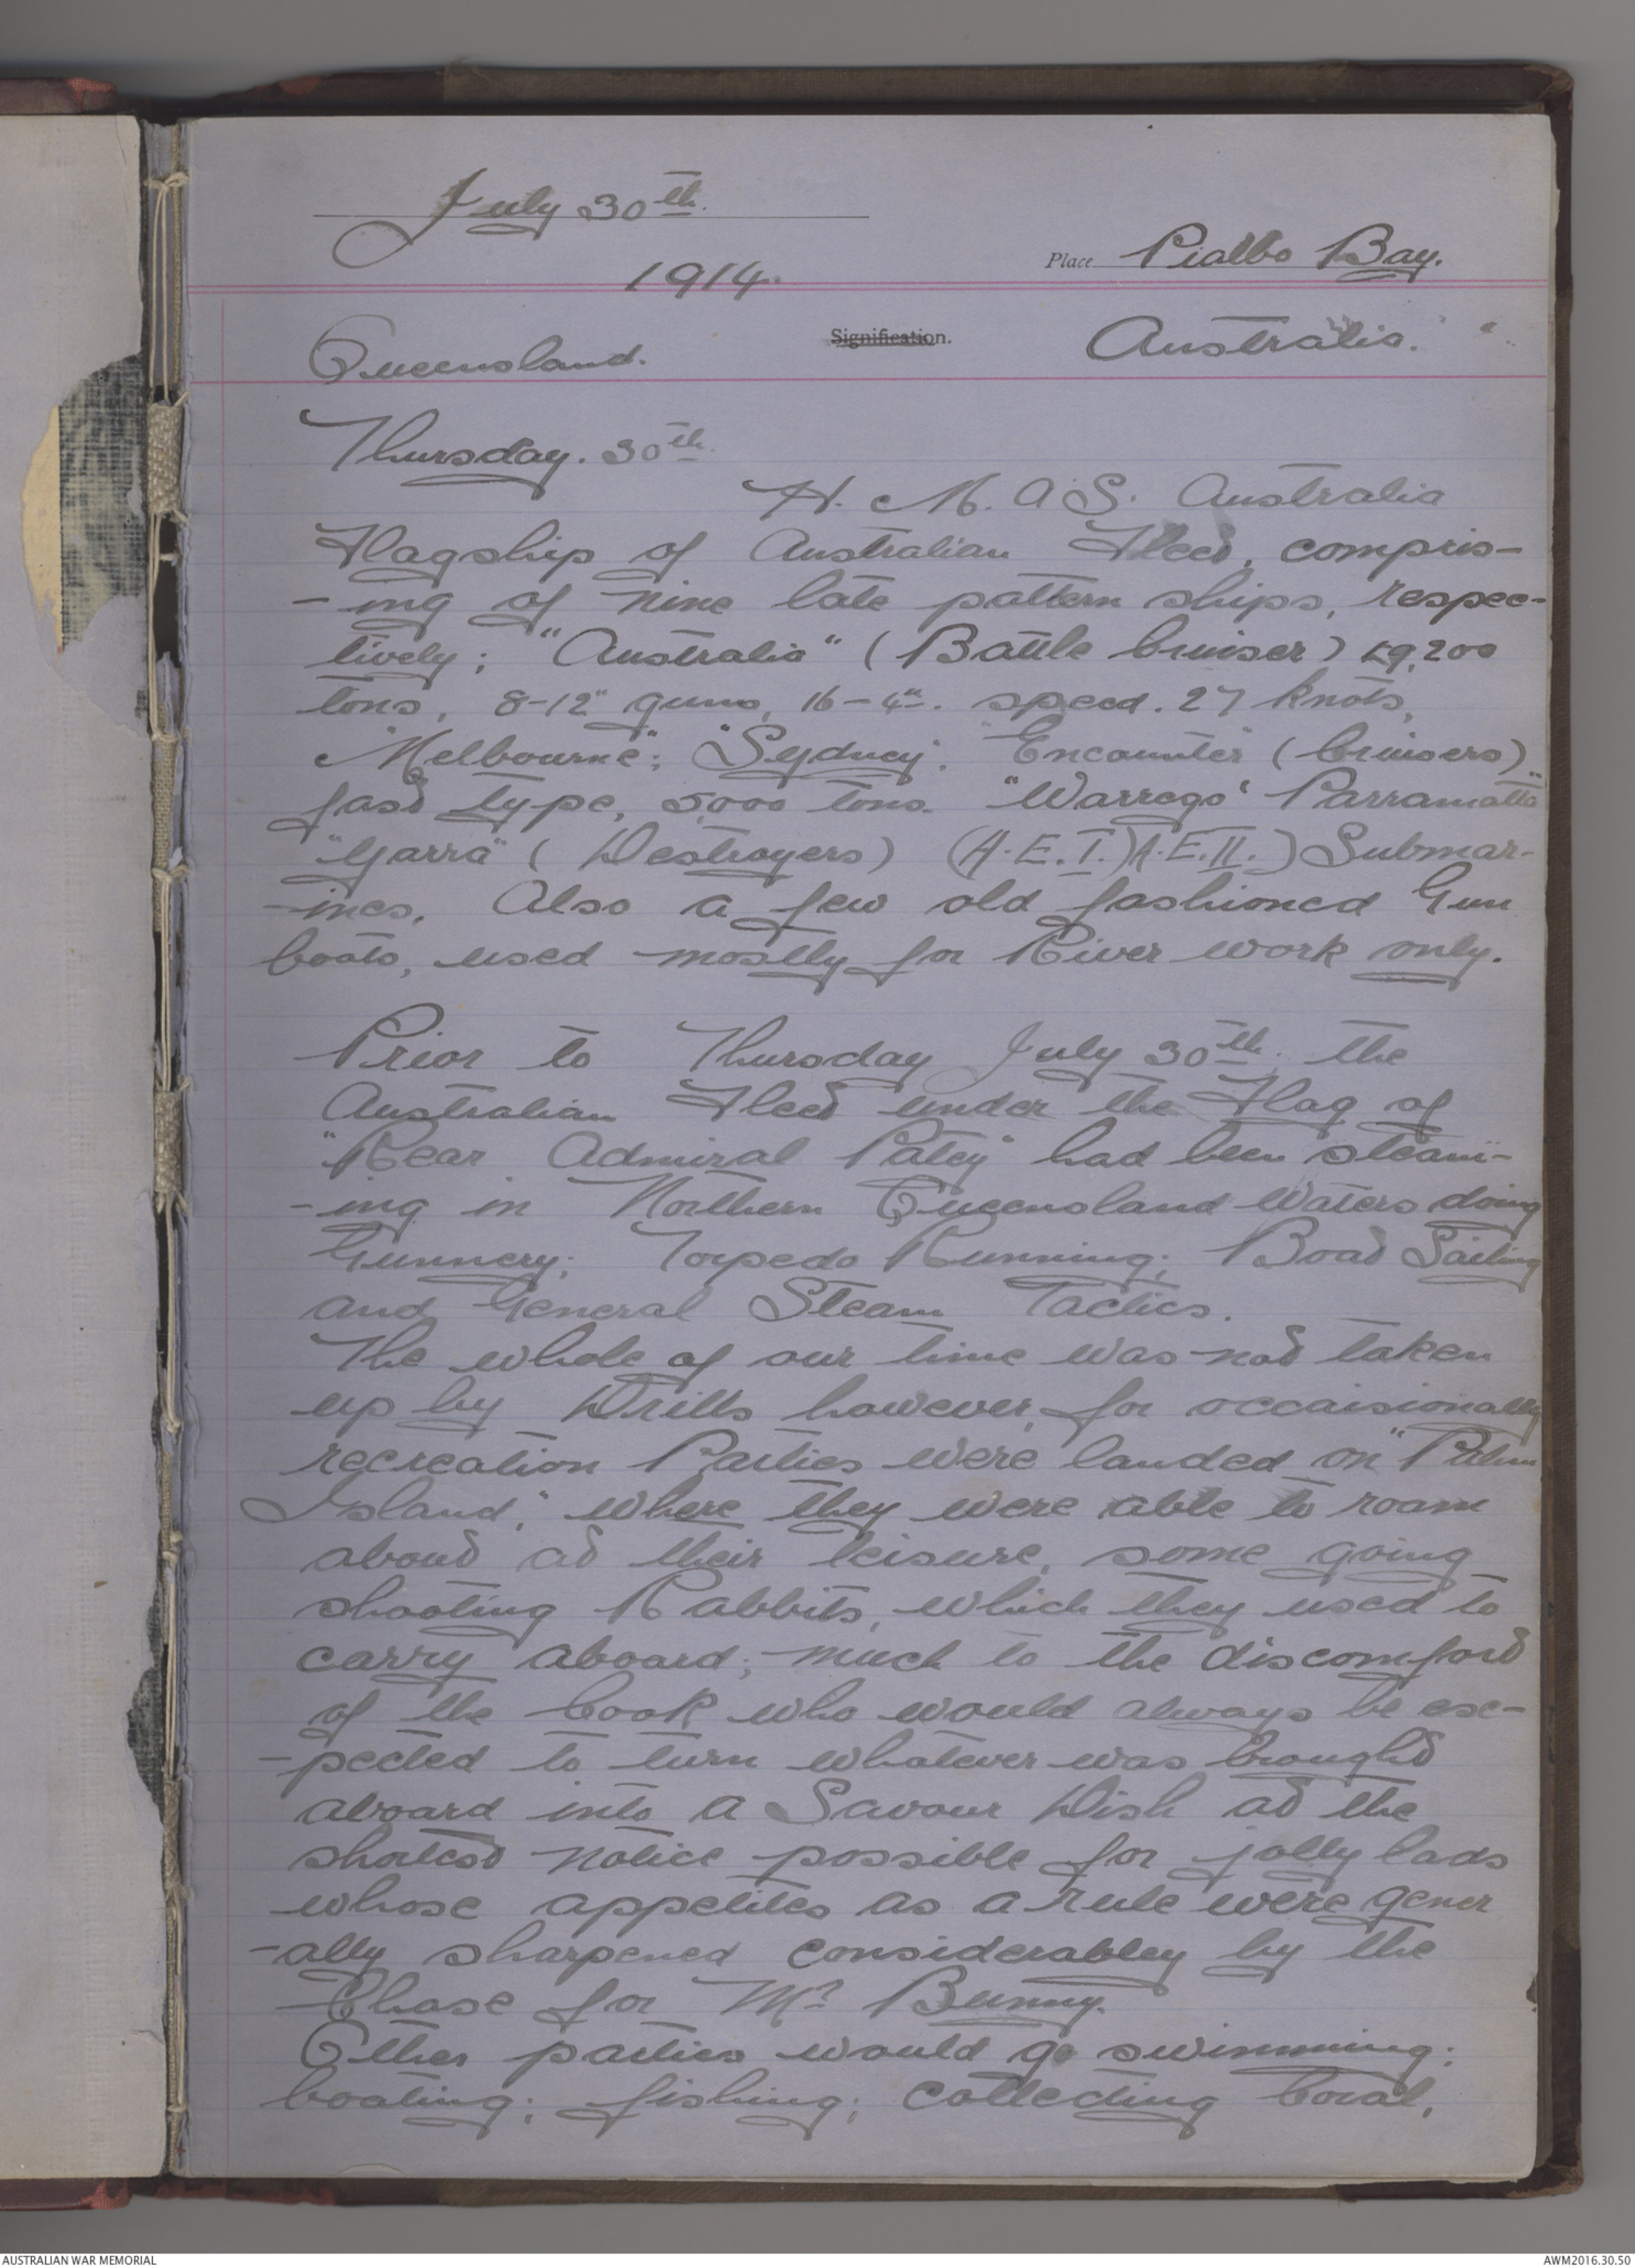 July 30th.
1914.
Place Pialbo Bay.
Queensland.
Signification.
Australia.
Thursday. 30th.
H. M. A S. Australia
Flagship of Australian Fleet, compris-
-ing of nine late pattern ships, respec-
tively; "Australia" (Battle Cruiser) 19,200
tons, 8-12" guns, 16-4". speed. 27 knots,
"Melbourne"; "Sydney", "Encounter" (Cruisers)
fast type, 5,000 tons. "Warrego" Parramatta"
"Yarra" (Destroyers) (A.E.I.) A.E.II.) Submar-
-ines. Also a few old fashioned Gun
boats, used mostly for River work only.
Prior to Thursday July 30th. the
Australian Fleet under the Flag of
"Rear Admiral Patey" had been steam-
-ing in Northern Queensland Waters doing
Gunnery; Torpedo Running; Boat Sailing
and General Steam Tactics.
The whole of our time was not taken
up by Drills however, for occaisionally
recreation Parties were landed on "Palm
Island," where they were able to roam
about at their leisure, some going
shooting Rabbits, which they used to
carry aboard; much to the discomfort
of the Cook who would always be ex-
-pected to turn whatever was brought
aboard into a Savour Dish at the
shortest notice possible for jolly lads
whose appetites as a rule were gener
-ally sharpened considerabley by the
Chase for Mr Bunny.
Other parties would go swimming;
boating; fishing; collecting Coral,
AUSTRALIAN WAR MEMORIAL
AWM2016.30.50